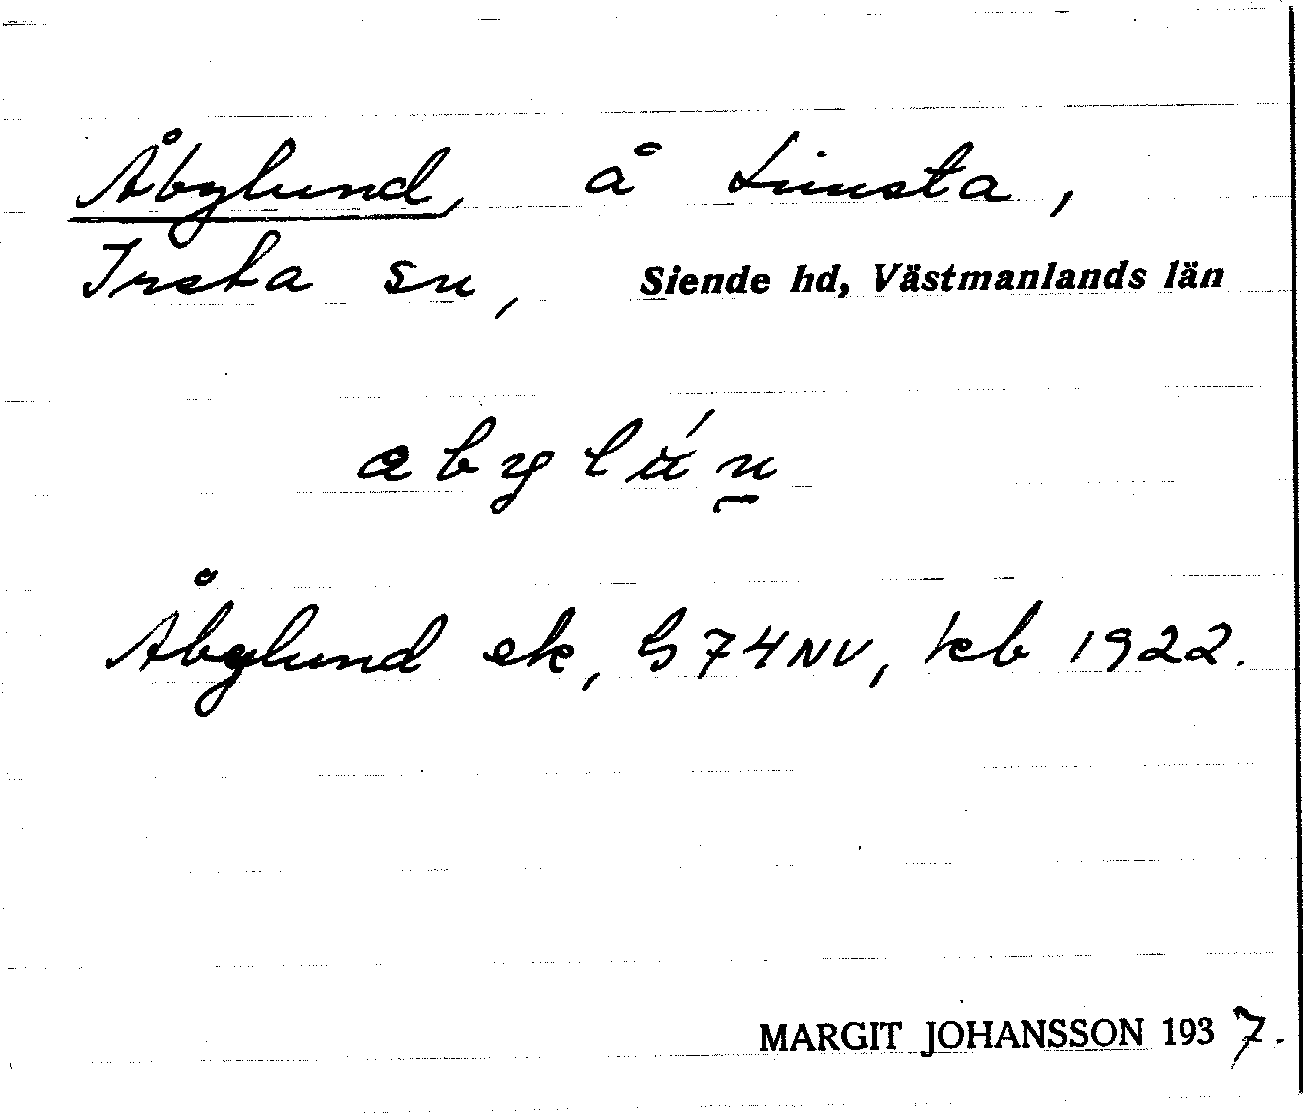 Åbylund, å Linsta,
Irsta sn, Siende hd, Västmanlands län
Åbylund ek, G 74 NV, keb 1922.
MARGIT JOHANSSON 1937.